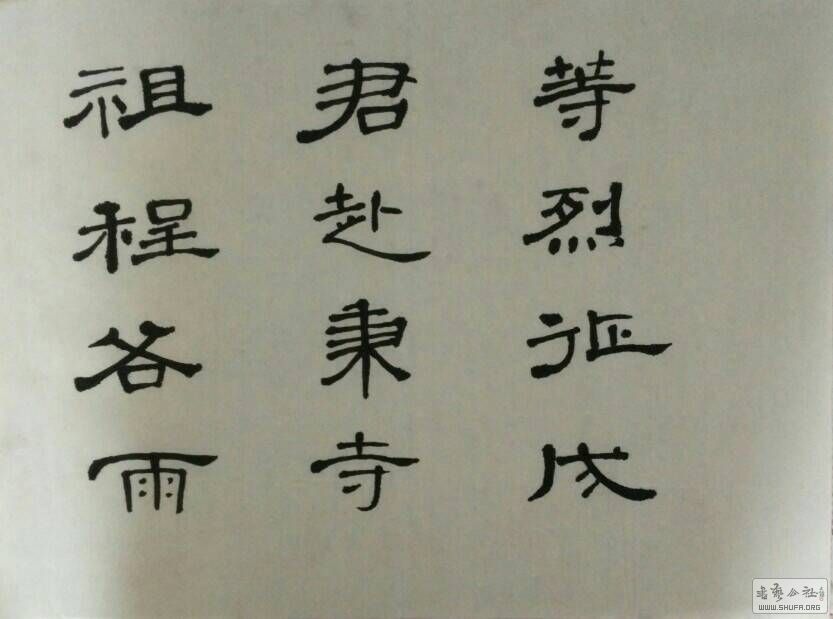 等烈征
君赴秉寺
祖程各雨
书艺公社
WWW.SHUFA.ORG